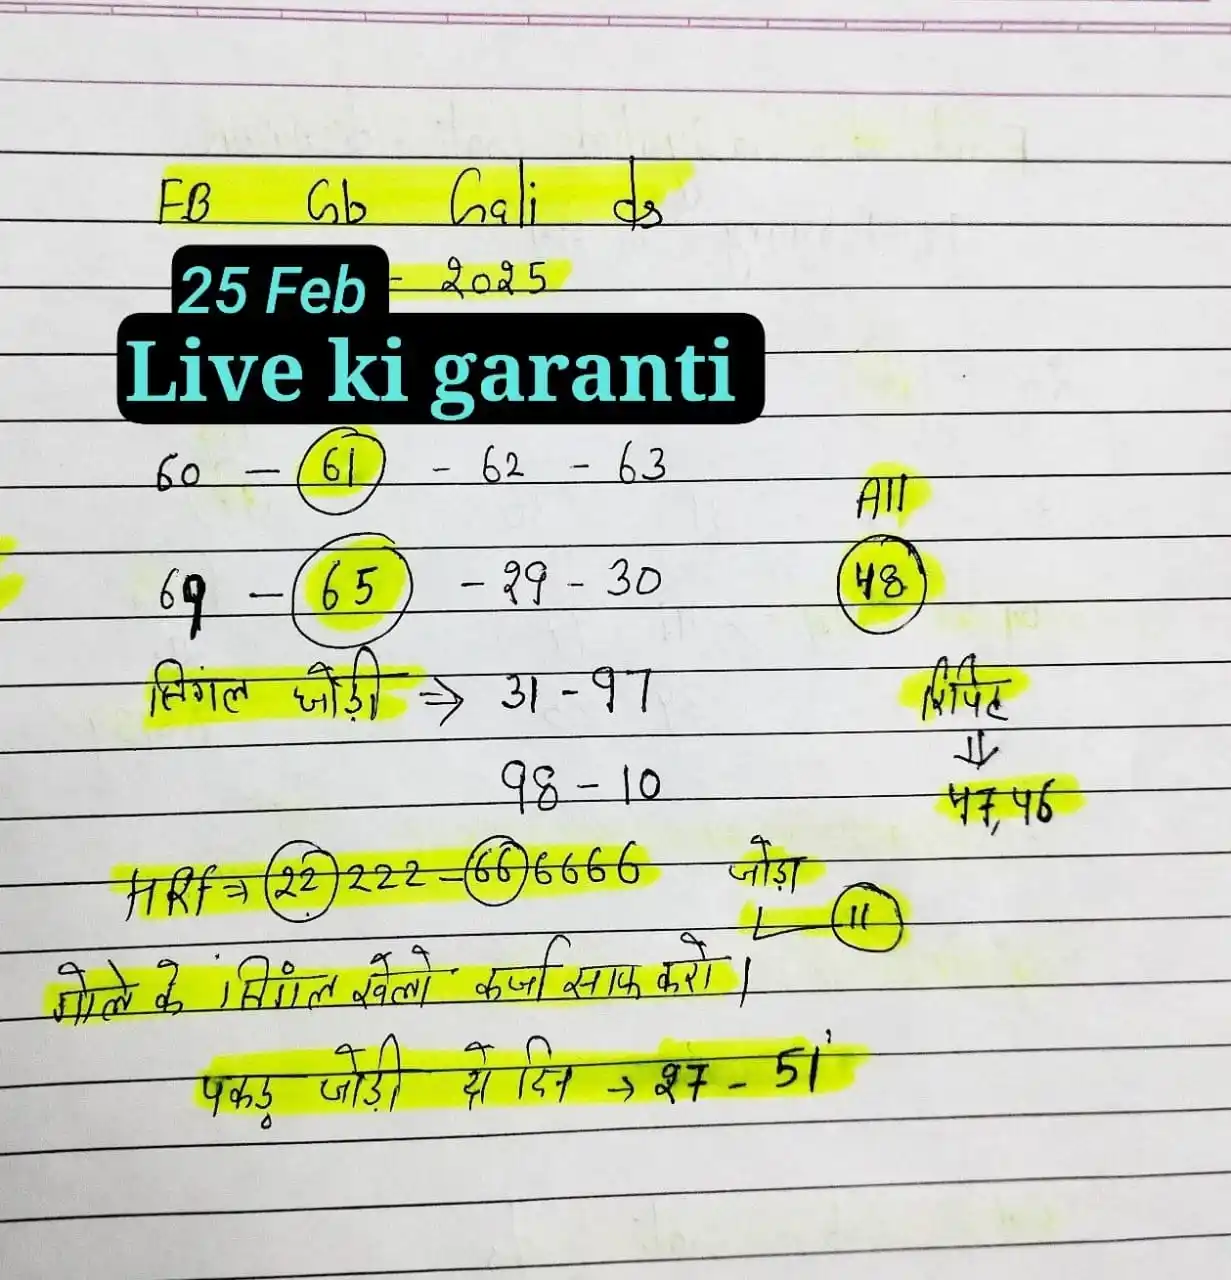 FB Gb Gali ds
25 Feb - 2025
Live ki garanti
60 - 61 - 62 - 63
All
69 - 65 - 29 - 30
48
सिंगल जोड़ी ⇒ 31 - 97
रिपिट
⇓
98 - 10
47, 46
हरूफ ⇒ 22222 - 666666
जोड़ा
11
गोले के सिंगल खेलो कर्जा साफ करो।
पकड़ जोड़ी दो दिन → 27 - 51